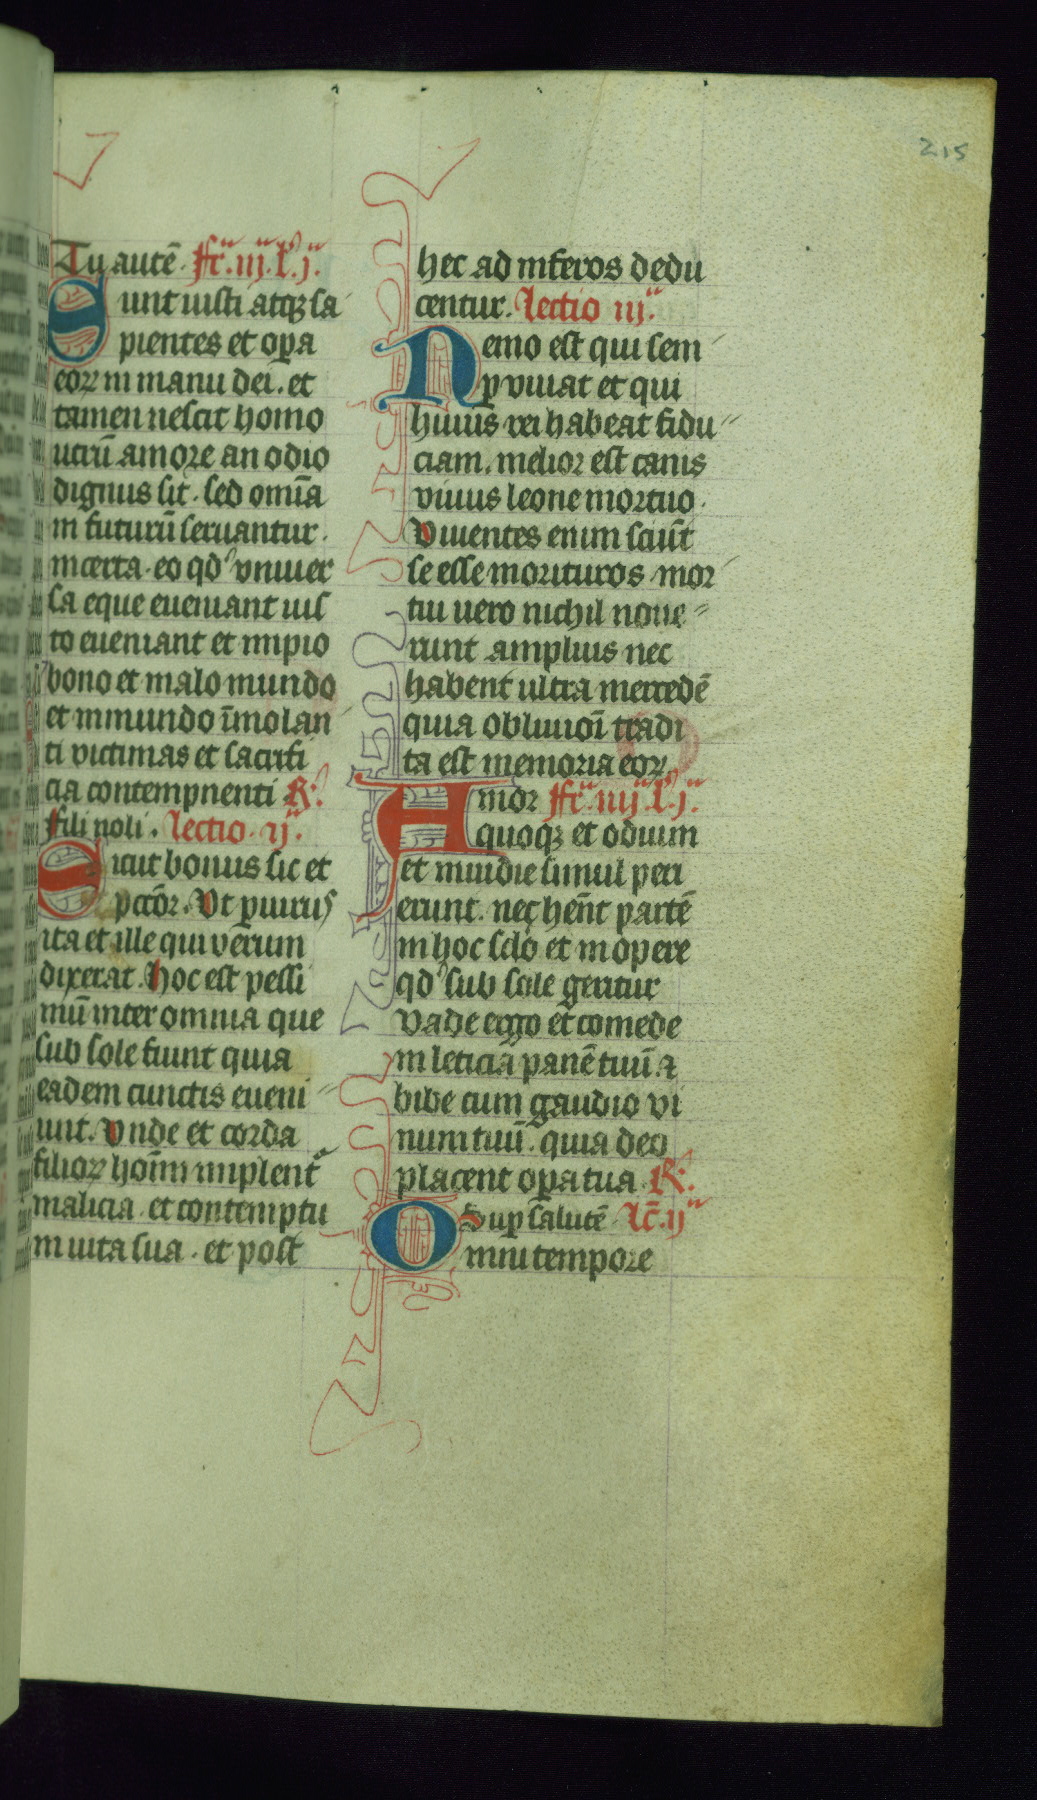 215
Tu autē. fr̄. iiij. l. j.
Sunt iusti atqꝫ sa
pientes et oꝑa
eoꝝ in manu dei. et
tamen nescit homo
utrū amore an odio
dignus sit. sed omīa
in futurū seruantur.
incerta. eo qd' vniuer
sa eque eueniant ius
to eueniant et impio
bono et malo mundo
et inmundo īmolan
ti victimas et sacrifi
cia contempnenti R:
fili noli. lectio. ij.
Sicut bonus sic et
pctōr. Vt ꝑiurus
ita et ille qui verum
dixerat. hoc est pessi
mū inter omnia que
sub sole fiunt quia
eadem cunctis eueni
unt. Vnde et corda
filioꝝ hoīm implent̄
malicia. et contemptu
in uita sua. et post
hec ad inferos dedu
centur. lectio iij.
Nemo est qui sem
ꝑ viuat et qui
huius rei habeat fidu
ciam. melior est canis
viuus leone mortuo.
Viuentes enim sciūt
se esse morituros. mor
tui uero nichil noue
runt amplius nec
habent ultra mercedē
quia obliuioī tradi
ta est memoria eoꝝ
Amor fr̄. iiij. l. j.
quoqꝫ et odium
et inuidie simul peri
erunt. nec hēnt partē
in hoc sclō et in opere
qd' sub sole geritur
Vade ergo et comede
in leticia panē tuū ⁊
bibe cum gaudio vi
num tuū. quia deo
placent oꝑa tua. R:
Suꝑ salutē. lc̄. ij
Omni tempore